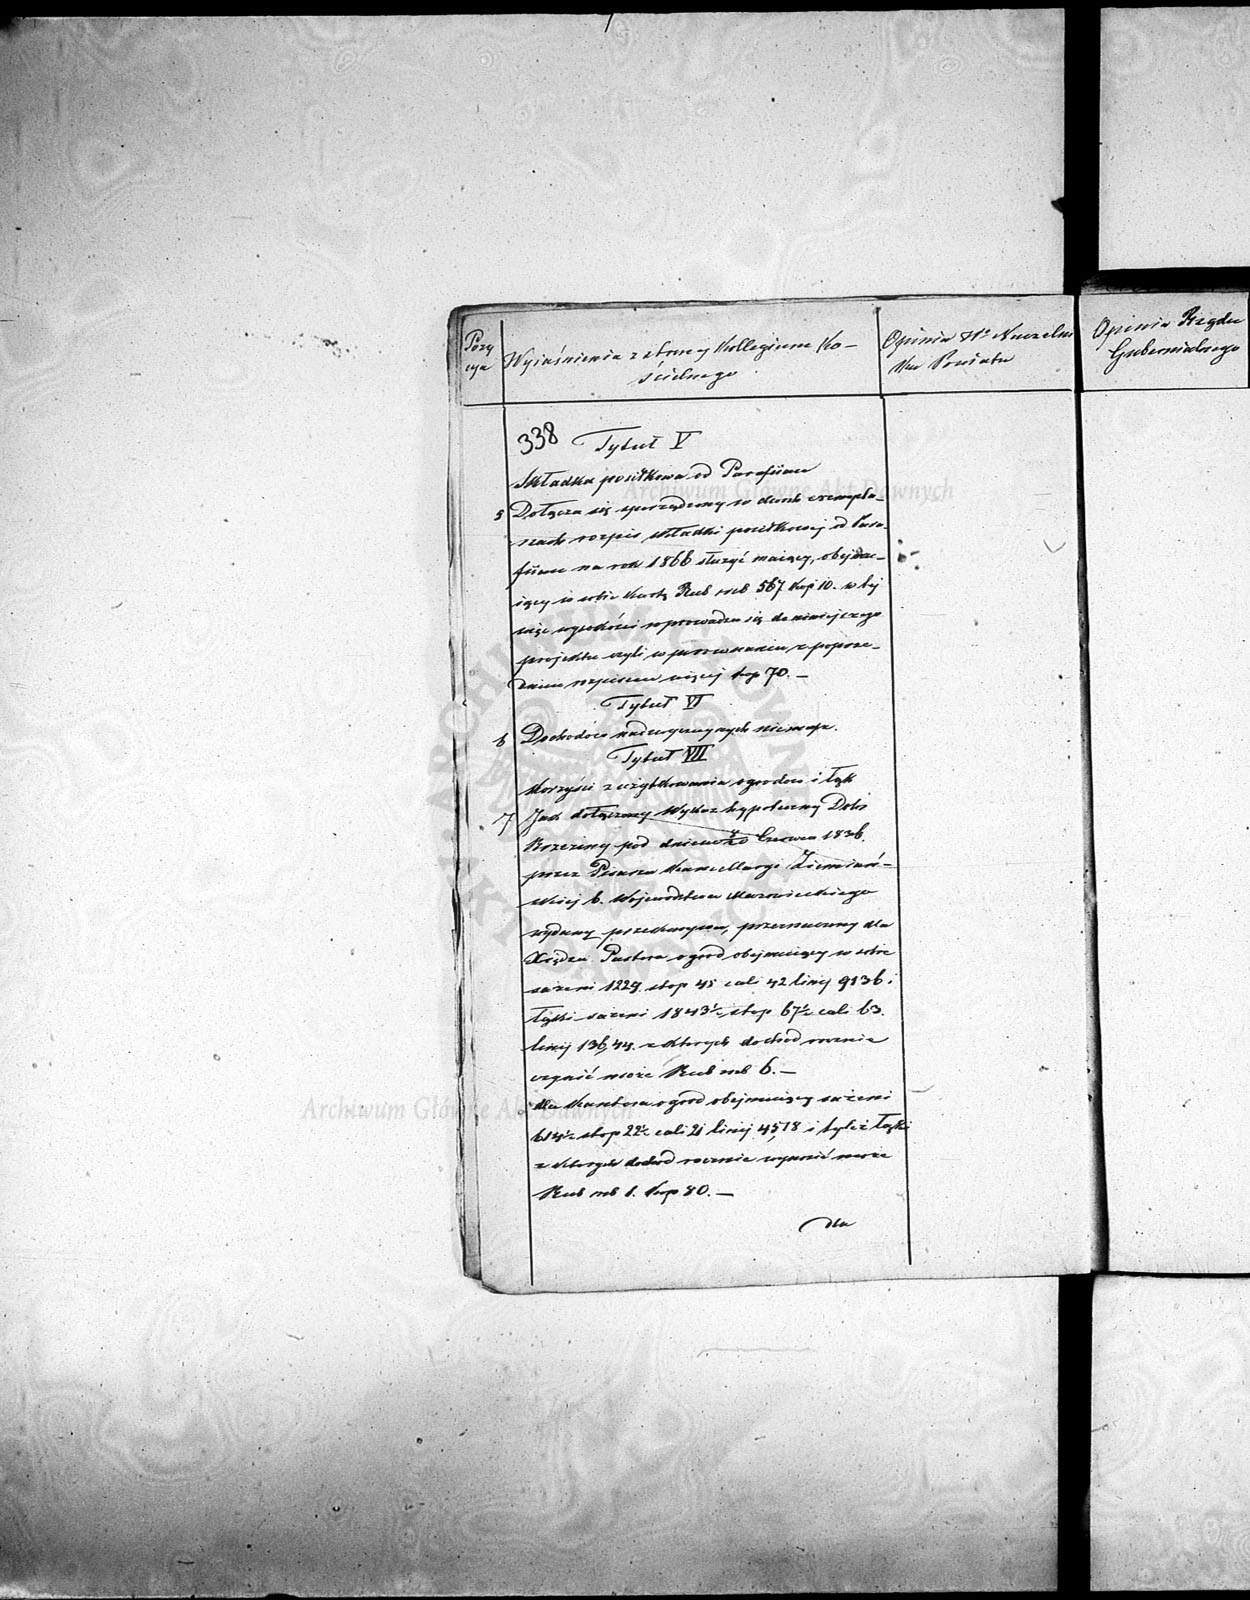 Pozy
cya
Wyjaśnienia z strony Kollegium Ko-
ścielnego
Opinia Wo Naczelni
ka Powiatu
Opinia Rządu
Gubernialnego
338 Tytuł V
Składka posiłkowa od Parafian
5 Dołącza się sporządzony w dwóch exempla-
rzach rozpis składki posiłkowej od Para-
fian na rok 1866 służyć mający, obejmu-
jący w sobie kwotę Rub sreb 567 kop 10. w tej
więc wysokości wprowadza się do niniejszego
projektu czyli w porównaniu z poprze-
dnim rozpisem więcej kop 70. –
Tytuł VI
6 Dochodów nadzwyczajnych niema.
Tytuł VII
Korzyści z użytkowania ogrodów i łąk
7 Jak dołączony Wykaz hypoteczny Dóbr
Brzeziny pod dniem 8/20 Czerwca 1836.
przez Pisarza Kancellaryi Ziemiań-
skiej b. Województwa Mazowieckiego
wydany przekonywa, przeznaczony dla
Xiędza Pastora ogród obejmujący w sobie
sażeni 1229 stop 45 cali 42 linij 9136 i
łąki sażeni 1843½ stop 67½ cali 63.
linij 136,44. z których dochód rocznie
czynić może Rub sreb 6. –
dla Kantora ogród obejmujący sażeni
614½ stop 22½ cali 21 linij 4518 i tyleż łąki
z których dochód rocznie czynić może
Rub sreb 1. kop 80. –
dla
Archiwum Główne Akt Dawnych
Archiwum Główne Akt Dawnych
ARCHIWUM GŁÓWNE AKT DAWNYCH